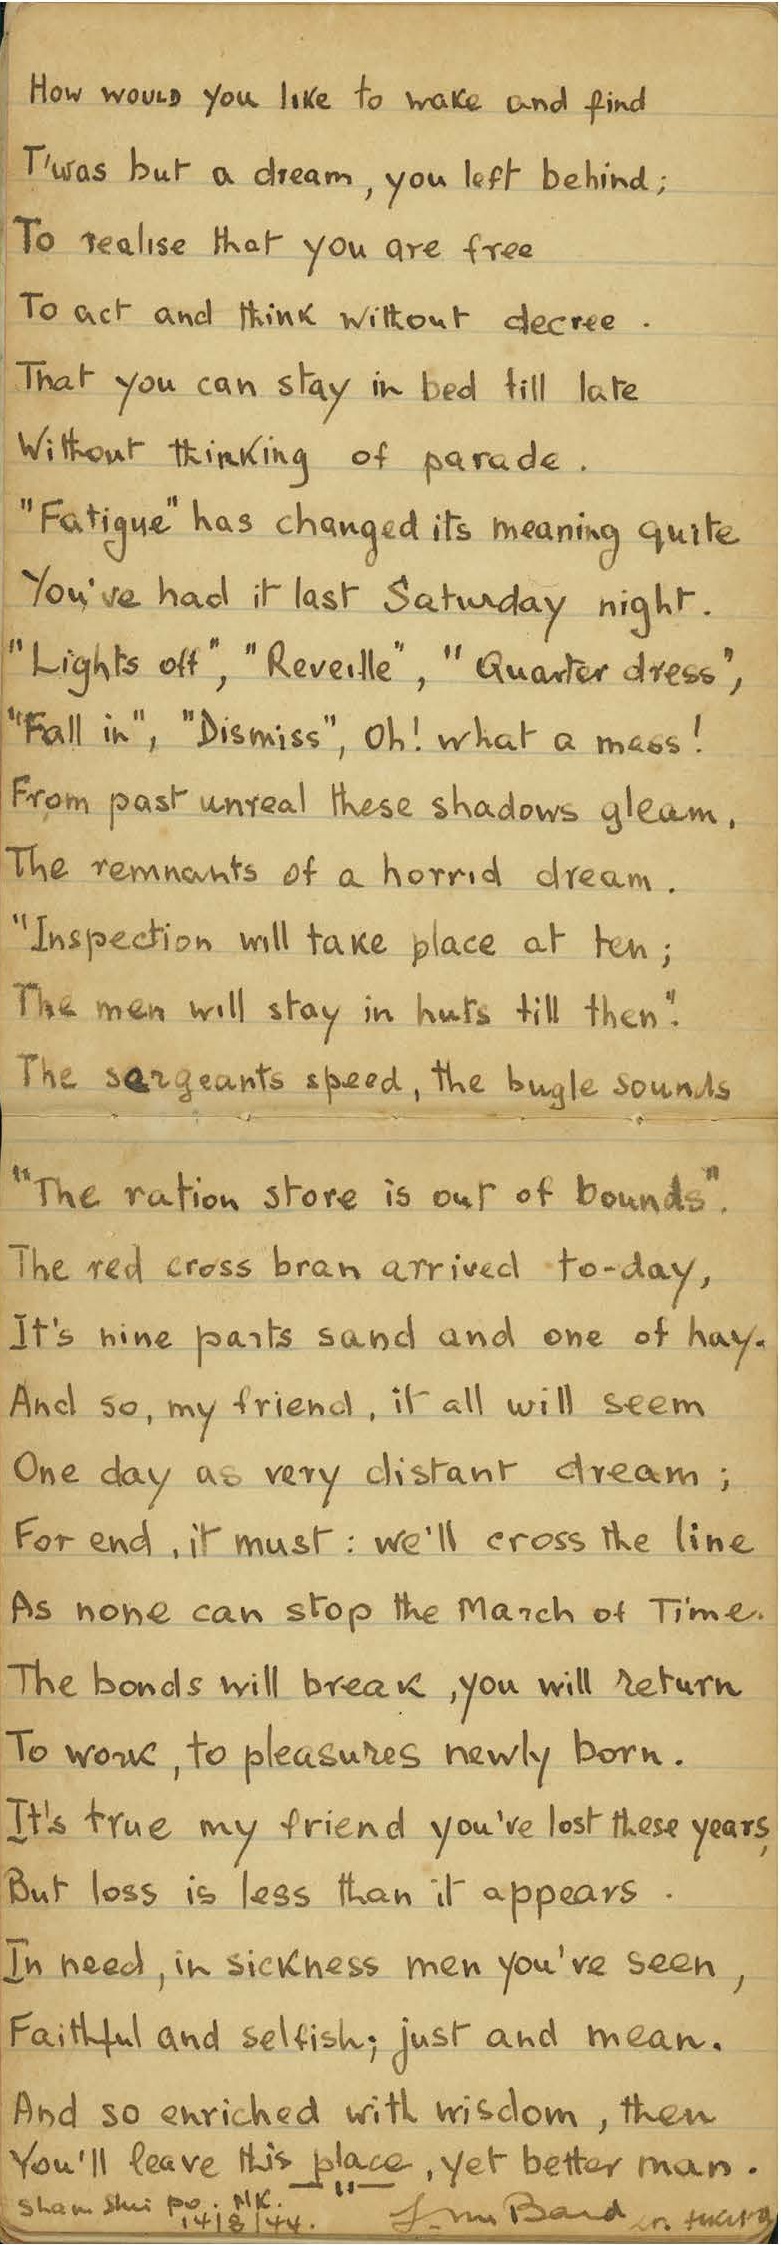 How would you like to wake and find
T'was but a dream, you left behind;
To realise that you are free
To act and think without decree.
That you can stay in bed till late
Without thinking of parade.
"Fatigue" has changed its meaning quite
You've had it last Saturday night.
"Lights off", "Reveille", "Quarter dress",
"Fall in", "Dismiss", Oh! what a mess!
From past unreal these shadows gleam,
The remnants of a horrid dream.
"Inspection will take place at ten;
The men will stay in huts till then".
The sergeants speed, the bugle sounds
"The ration store is out of bounds".
The red cross bran arrived to-day,
It's nine parts sand and one of hay.
And so, my friend, it all will seem
One day as very distant dream;
For end, it must: we'll cross the line
As none can stop the March of Time.
The bonds will break, you will return
To work, to pleasures newly born.
It's true my friend you've lost these years,
But loss is less than it appears.
In need, in sickness men you've seen,
Faithful and selfish; just and mean.
And so enriched with wisdom, then
You'll leave this place, yet better man.
Sham Shui Po. HK.
14/8/44.